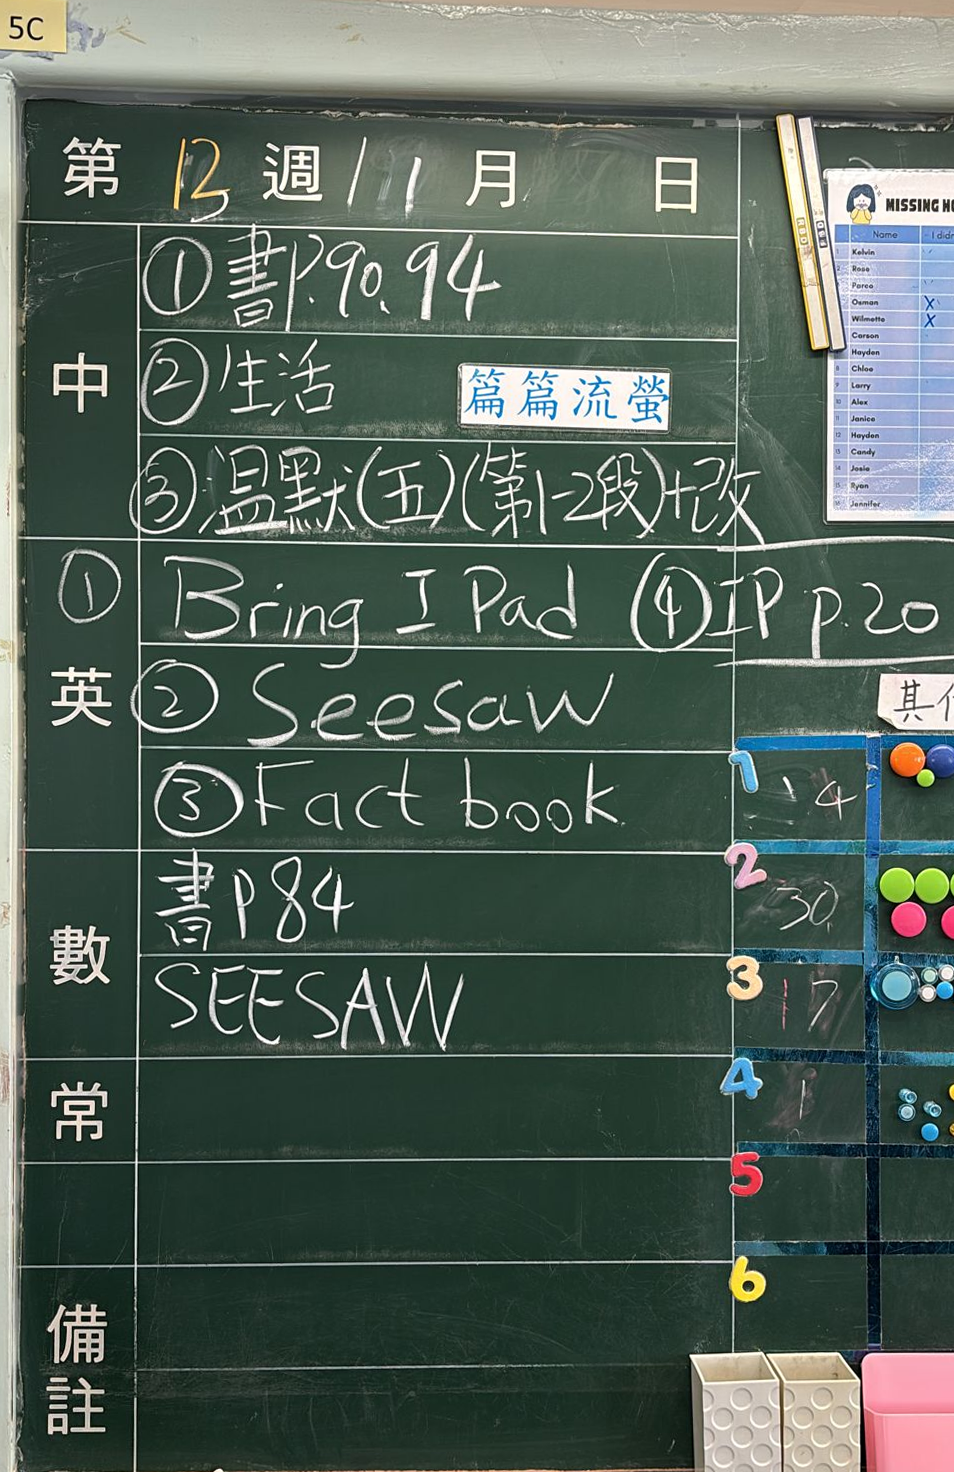 5C
第 13 週 11 月 日
中
①書P.90.94
②生活 篇篇流螢
③溫默(五)(第1-2段)+改
英
① Bring I Pad ④IP p.20
② Seesaw
③Fact book
數
書P84
SEESAW
常
備註
MISSING
Name I didn
1 Kelvin
2 Rose
Parco
Osman X
Wilmette X
Carson
Hayden
8 Chloe
9 Larry
10 Alex
11 Janice
12 Hayden
13 Candy
14 Josie
15 Ryan
16 Jennifer
其
1 14
2 30
3 17
4 1
5
6